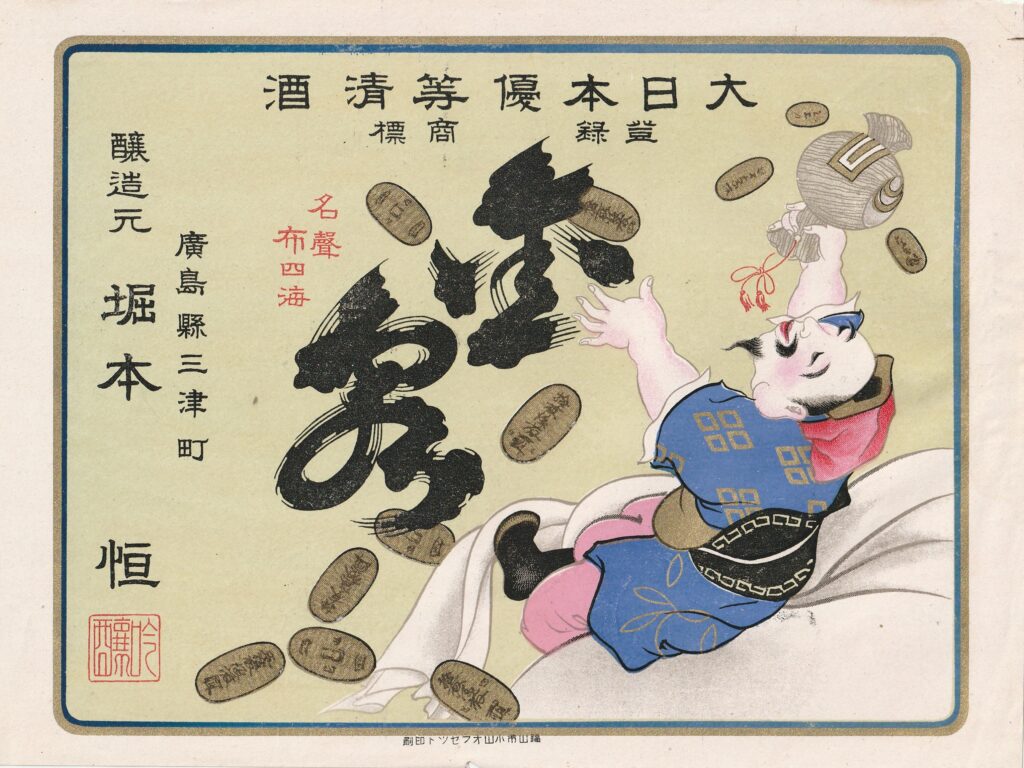 大日本優等清酒
登錄商標
名聲
布四海
廣島縣三津町
釀造元 堀本 恒
吟釀
山市小山オフセツト印刷